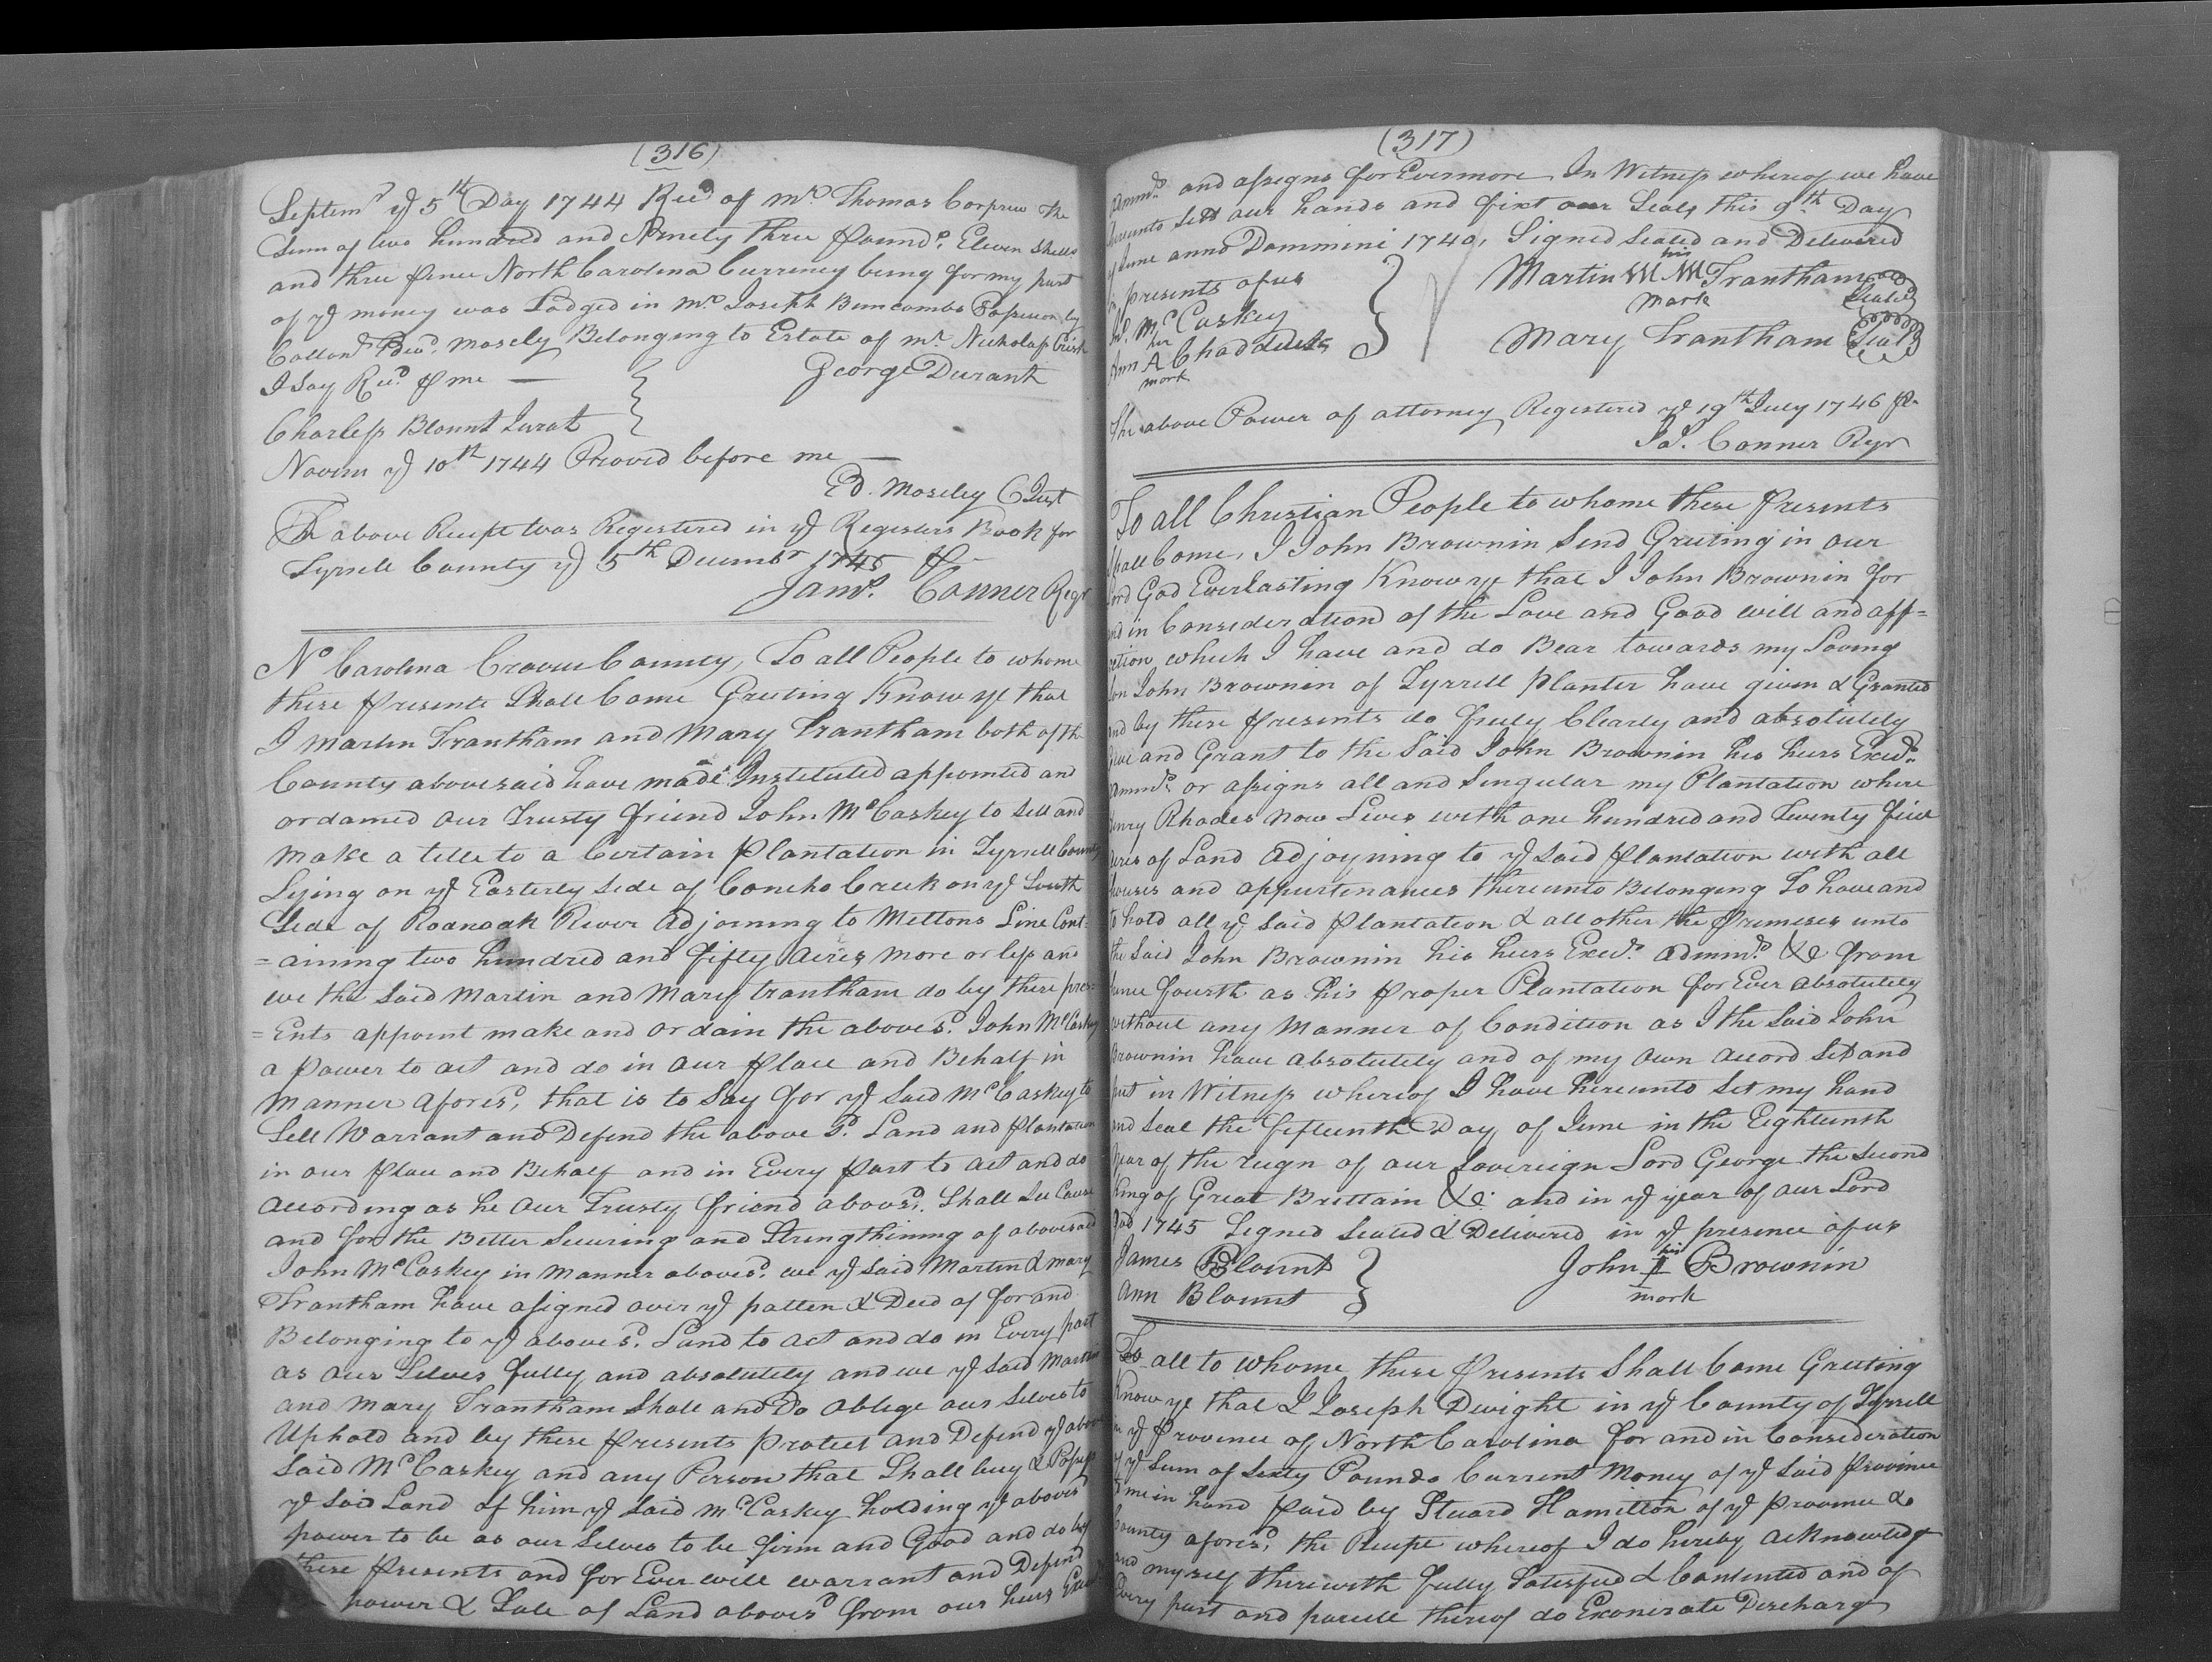 (316)
Septemr ye 5th Day 1744 Recd of Mr Thomas Corprew the
Sum of two hundred and Ninety three pounds, Eleven Shills
and three pence North Carolina Currency being for my part
of ye money was Lodged in Mr Joseph Buncombs by
Edwd Mosely Belonging to Estate of Mr Nicholas Crisp
I Say Recd p me
George Durant
Charless Blount Jurat
Novem ye 10th 1744 Proved before me
Ed. Moseley C Just
The above Recept was Registered in ye Registers Book for
Tyrrell County ye 5th Decembr 1745 p
Jams. Conner Regr
No Carolina Craven County, To all People to whome
these presents Shall Come Greeting Know ye that
I Martin Trantham and Mary Trantham both of the
County abovesaid have made Instituted appointed and
ordained our Trusty friend John McCaskey to Sell and
make a title to a Certain plantation in Tyrrell County
Lying on ye Easterly Side of Coneho Creek on ye South
Side of Roanoak River adjoining to Mettons Line Cont-
=aining two hundred and fifty acres more or less and
we the Said Martin and Mary trantham do by these pres=
=Ents appoint make and ordain the aboves.d John McCaskey
a power to act and do in our place and Behalf in
manner afores.d, that is to Say for ye Said McCaskey to
Sell Warrant and Defend the above S.d Land and plantation
in our place and Behalf and in Every part to act and do
according as he our Trusty friend aboves.d Shall See Cause
and for the Better Securing and Strengthining of abovesaid
John McCaskey in manner aboves.d we ye Said Martin & mary
Trantham have asigned over ye patten & Deed of for and
Belonging to ye aboves.d Land to act and do in Every part
as our Selves fully and absolutely and we ye Said Martin
and Mary Trantham Shall and Do oblege our Selves to
Uphold and by these presents protect and Defend ye above
Said McCaskey and any Person that Shall buy & Possess
ye Said Land of him ye Said McCaskey holding ye aboves.d
power to be as our Selves to be firm and Good and do by
these presents and for Ever will warrant and Defend
power & Sale of Land aboves.d from our heirs Execrs
(317)
Admrs and assigns for Evermore In Witness whereof we have
hereunto Sett our hands and fixt our Seals this 9th Day
of June anno Dommini 1740, Signed Sealed and Delivered
in presents of us
Jno. McCaskey
her
Ann A Chadduck
mark
his
Martin M Trantham Seald
mark
Mary Trantham Seal
The above Power of attorney Registered ye 19th July 1746 p
Ja.s Conner Regr
To all Christian People to whome these presents
Shall Come, I John Brownin Send Greeting in our
Lord God Everlasting Know ye that I John Brownin for
and in Consideration of the Love and Good will and aff=
ection which I have and do Bear towards my Loving
Son John Brownin of Tyrrell planter have given & Granted
and by these presents do freely Clearly and absolutely
give and Grant to the Said John Brownin his heirs Execrs
Admrs or assigns all and Singular my Plantation where
Henry Rhodes now Lives with one hundred and Twenty five
acres of Land adjoyning to ye Said plantation with all
houses and appurtenances thereunto Belonging To have and
to hold all ye Said plantation & all other the premeses unto
the Said John Brownin his heirs Execrs admrs &c from
hence fourth as his proper Plantation for Ever absolutely
without any manner of Condition as I the Said John
Brownin have absolutely and of my own accord Set and
put in Witness whereof I have hereunto Set my hand
and Seal the fifteenth Day of June in the Eighteenth
year of the reign of our Sovereign Lord George the Second
King of Great Brittain &c. and in ye year of our Lord
God 1745 Signed Sealed & Delivered in ye presence of us
James Blount
Ann Blount
his
John Brownin
mark
To all to whome these presents Shall Come Greeting
Know ye that I Joseph Dwight in ye County of Tyrrell
in ye province of North Carolina for and in Consideration
of ye Sum of Sixty Pounds Current Money of ye Said province
to me in hand paid by Stuard Hamilton of ye province &
County afores.d, the Recept whereof I do hereby acknowledge
and myself therewith fully Satisfied & Contented and of
Every part and parcell thereof do Exonerate Discharge